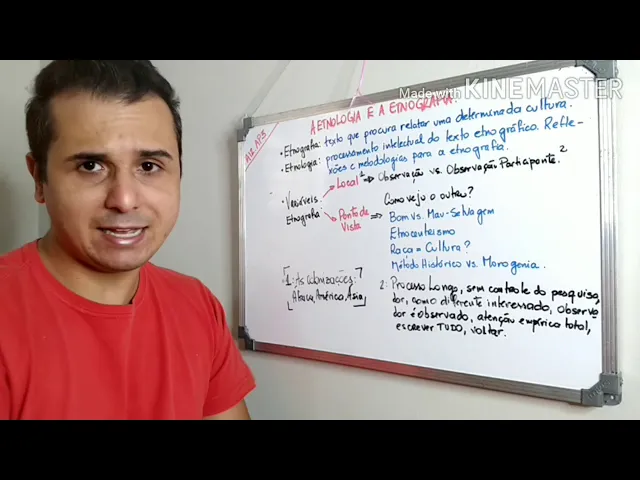 Made with KINEMASTER
A ETNOLOGIA E A ETNOGRAFIA.
• Etnografia: texto que procura relatar uma determinada cultura.
• Etnologia: processamento intelectual do texto etnográfico. Refle-
xões e metodologias para a etnografia.
• Variáveis Etnografia
Local ¹ ⇒ Observação vs. Observação Participante. ²
Ponto de Vista ⇒ Como vejo o outro?
Bom vs. Mau-Selvagem
Etnocentrismo
Raça = Cultura?
Método Histórico vs.
1: As colonizações:
África, América, Ásia
2: Processo Longo, sem controle do pesquisa
dor, como diferente interessado, observa
dor é observado, atenção empírica total,
escrever TUDO, voltar.